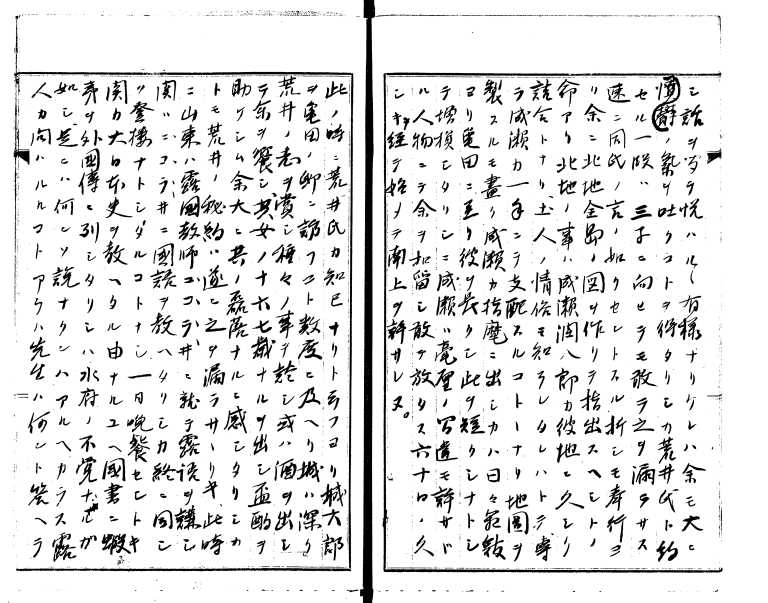 シ話ヲ為ヲ悦ハルヽ有様ナリケレハ余モ大ニ
憤辭ノ氣ヲ吐クコトヲ得タリシカ荒井氏ト約
セル一段ハ三子ニ向セラモ敢テ之ヲ漏ラサス
速ニ因氏ノ言ノ如クセントスル折シモ奉行ヨ
リ余ニ北地全島ノ図ヲ作リテ指出スヘシトノ
命アリ北地ノ事ハ成瀬潤八郎カ彼地ニ久シク
詰合トナリ土人ノ情俗モ知ラレタレハトテ専
ラ成瀬カ一手ニテ支配スルコトナリ地圖ヲ
製スルモ畫リ成瀬カ指麾ニ出シカハ日々箱館
ヨリ亀田ニ至リ彼ヲ長クシ此ヲ短クシナトシ
テ増損シタリシニ成瀬ハ毫厘ノ写違モ許サヾ
ル人物ニテ余ヲ如留シ敢テ放タス六十日ノ久
シキヲ経テ始メテ南上ヲ許サレヌ。
此ノ時ニ荒井氏カ知己ナリト云フヨリ城大郎
ヲ亀田ノ邸ニ訪フコト数度ニ及ヘリ城ハ深ク
荒井ノ志ヲ賞シ種々ノ事ヲ談シ或ハ酒ヲ出シ
テ余ヲ饗シ其女ノ十六七歳ナルヲ出シ盃酌ヲ
助ケシム余大ニ其ノ磊落ナルニ感シタリシカ
トモ荒井ノ秘約ハ遂ニ之ヲ漏ラサヽリキ此時
ニ山東ハ露國教師ココライニ就テ露語ヲ講シ
関ハニコライニ國語ヲ教ヘタリシカ終ニ同シ
ク登楼ナトシタルコトナシ一日晩餐セントキ
関カ大日本史ヲ教ヘタル由ナルユヘ國書ニ蝦
夷ヲ外國傳ニ列シタリシハ水府ノ不覚ナレカ
如シ是ニハ何シソ説ナクンハアルヘカラス露
人カ問ハルルコトアラハ先生ハ何ント答ヘラ